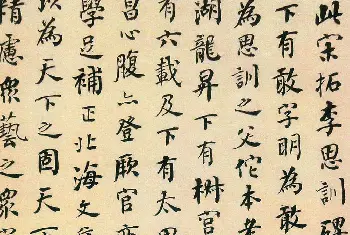 此宋拓李思訓碑
下有敢字明為敢
為思訓之父佗本
湖龍昇下有樹官
有六載及下有太
昌心腹六登厥官
學足補正北海文
以為天下之固天下
精慮眾藝之眾